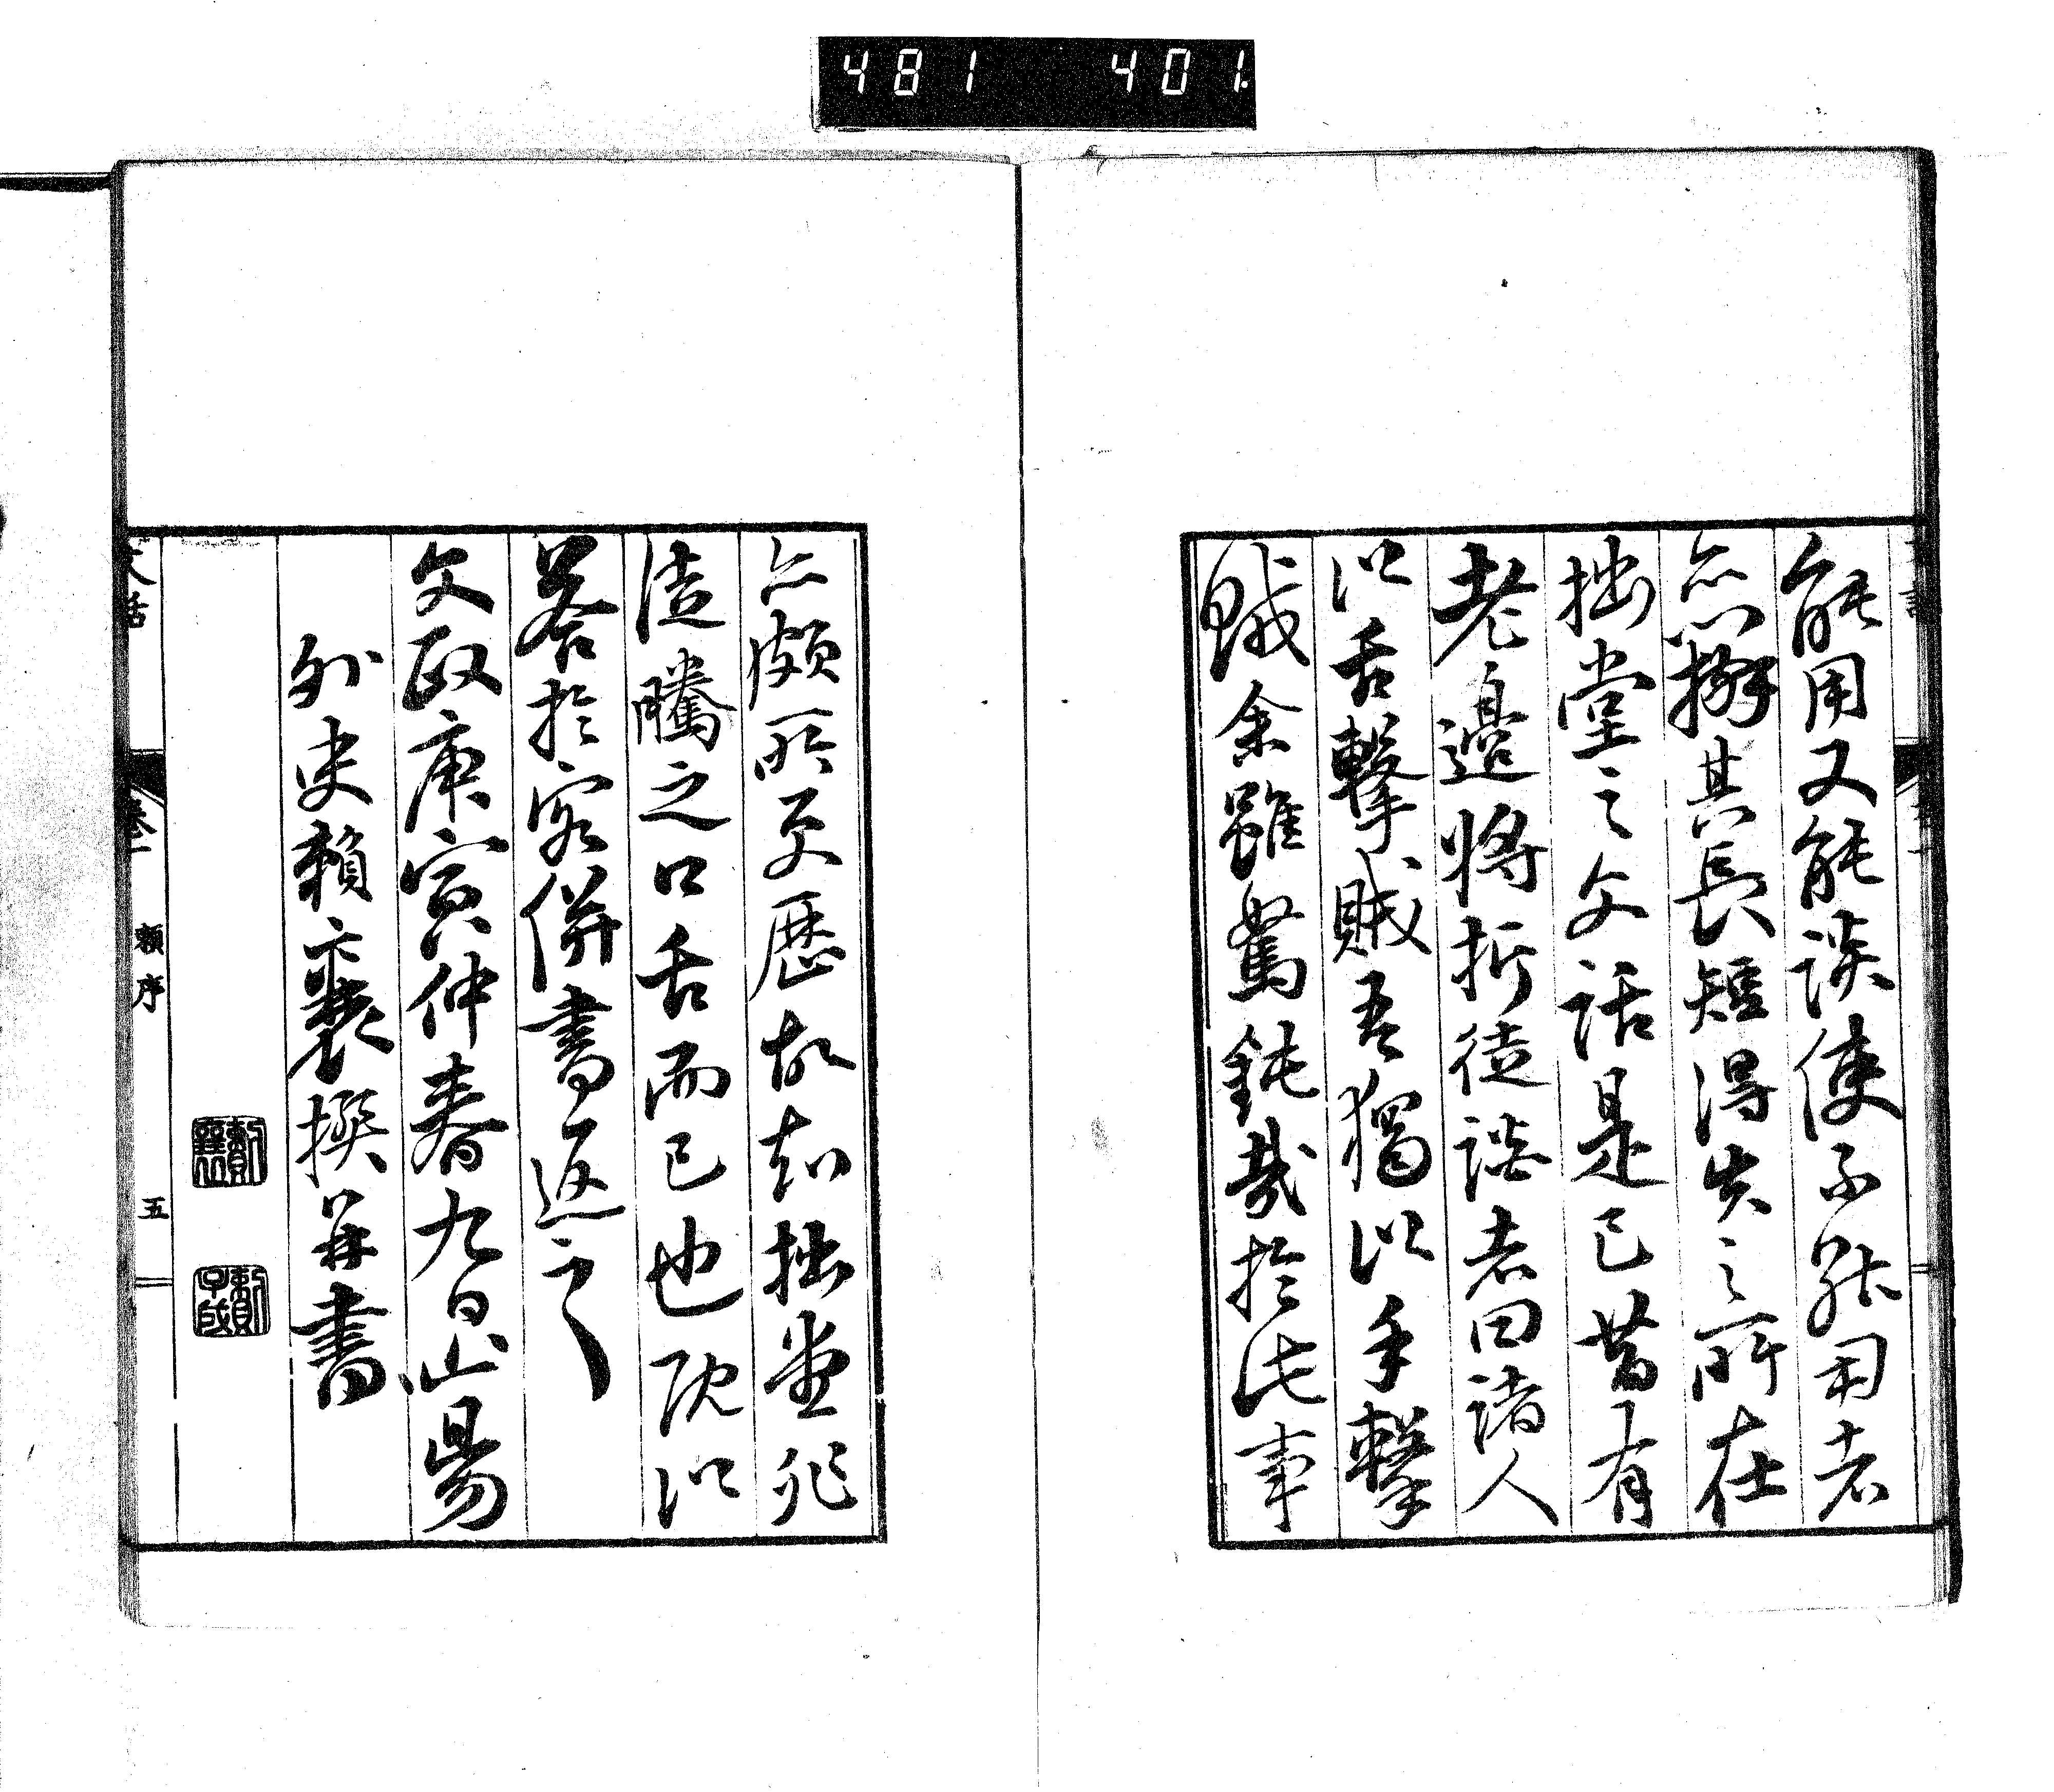 481 401.
能用又能談使不能用者
亦擬其長短得失之所在
拙堂之文話是已昔有
老邊將折徒談者曰諸人
以舌擊賊吾獨以手擊
賊余雖駑鈍哉於此事
亦頗所更歷故知拙堂非
徒騰之口舌而已也既以
答於客併書返之
文政庚寅仲春九日山陽
外史賴襄撰并書
賴襄
賴子成
文話
卷一
賴序
五